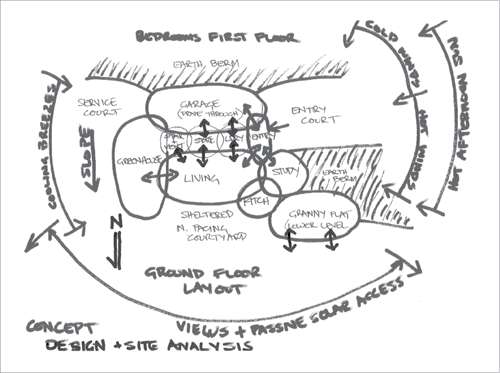 BEDROOMS FIRST FLOOR
EARTH BERM
GARAGE
(DRIVE THROUGH)
SERVICE
COURT
ENTRY
COURT
STORE
L'DRY
ENTRY
GREENHOUSE
LIVING
STUDY
EARTH
BERM
K'TCH
GRANNY FLAT
(LOWER LEVEL)
SHELTERED
N. FACING
COURTYARD
COOLING BREEZES
SLOPE
N
COLD WINDS
HOT
HOT AFTERNOON SUN
GROUND FLOOR
LAYOUT
VIEWS + PASSIVE SOLAR ACCESS
CONCEPT
DESIGN + SITE ANALYSIS